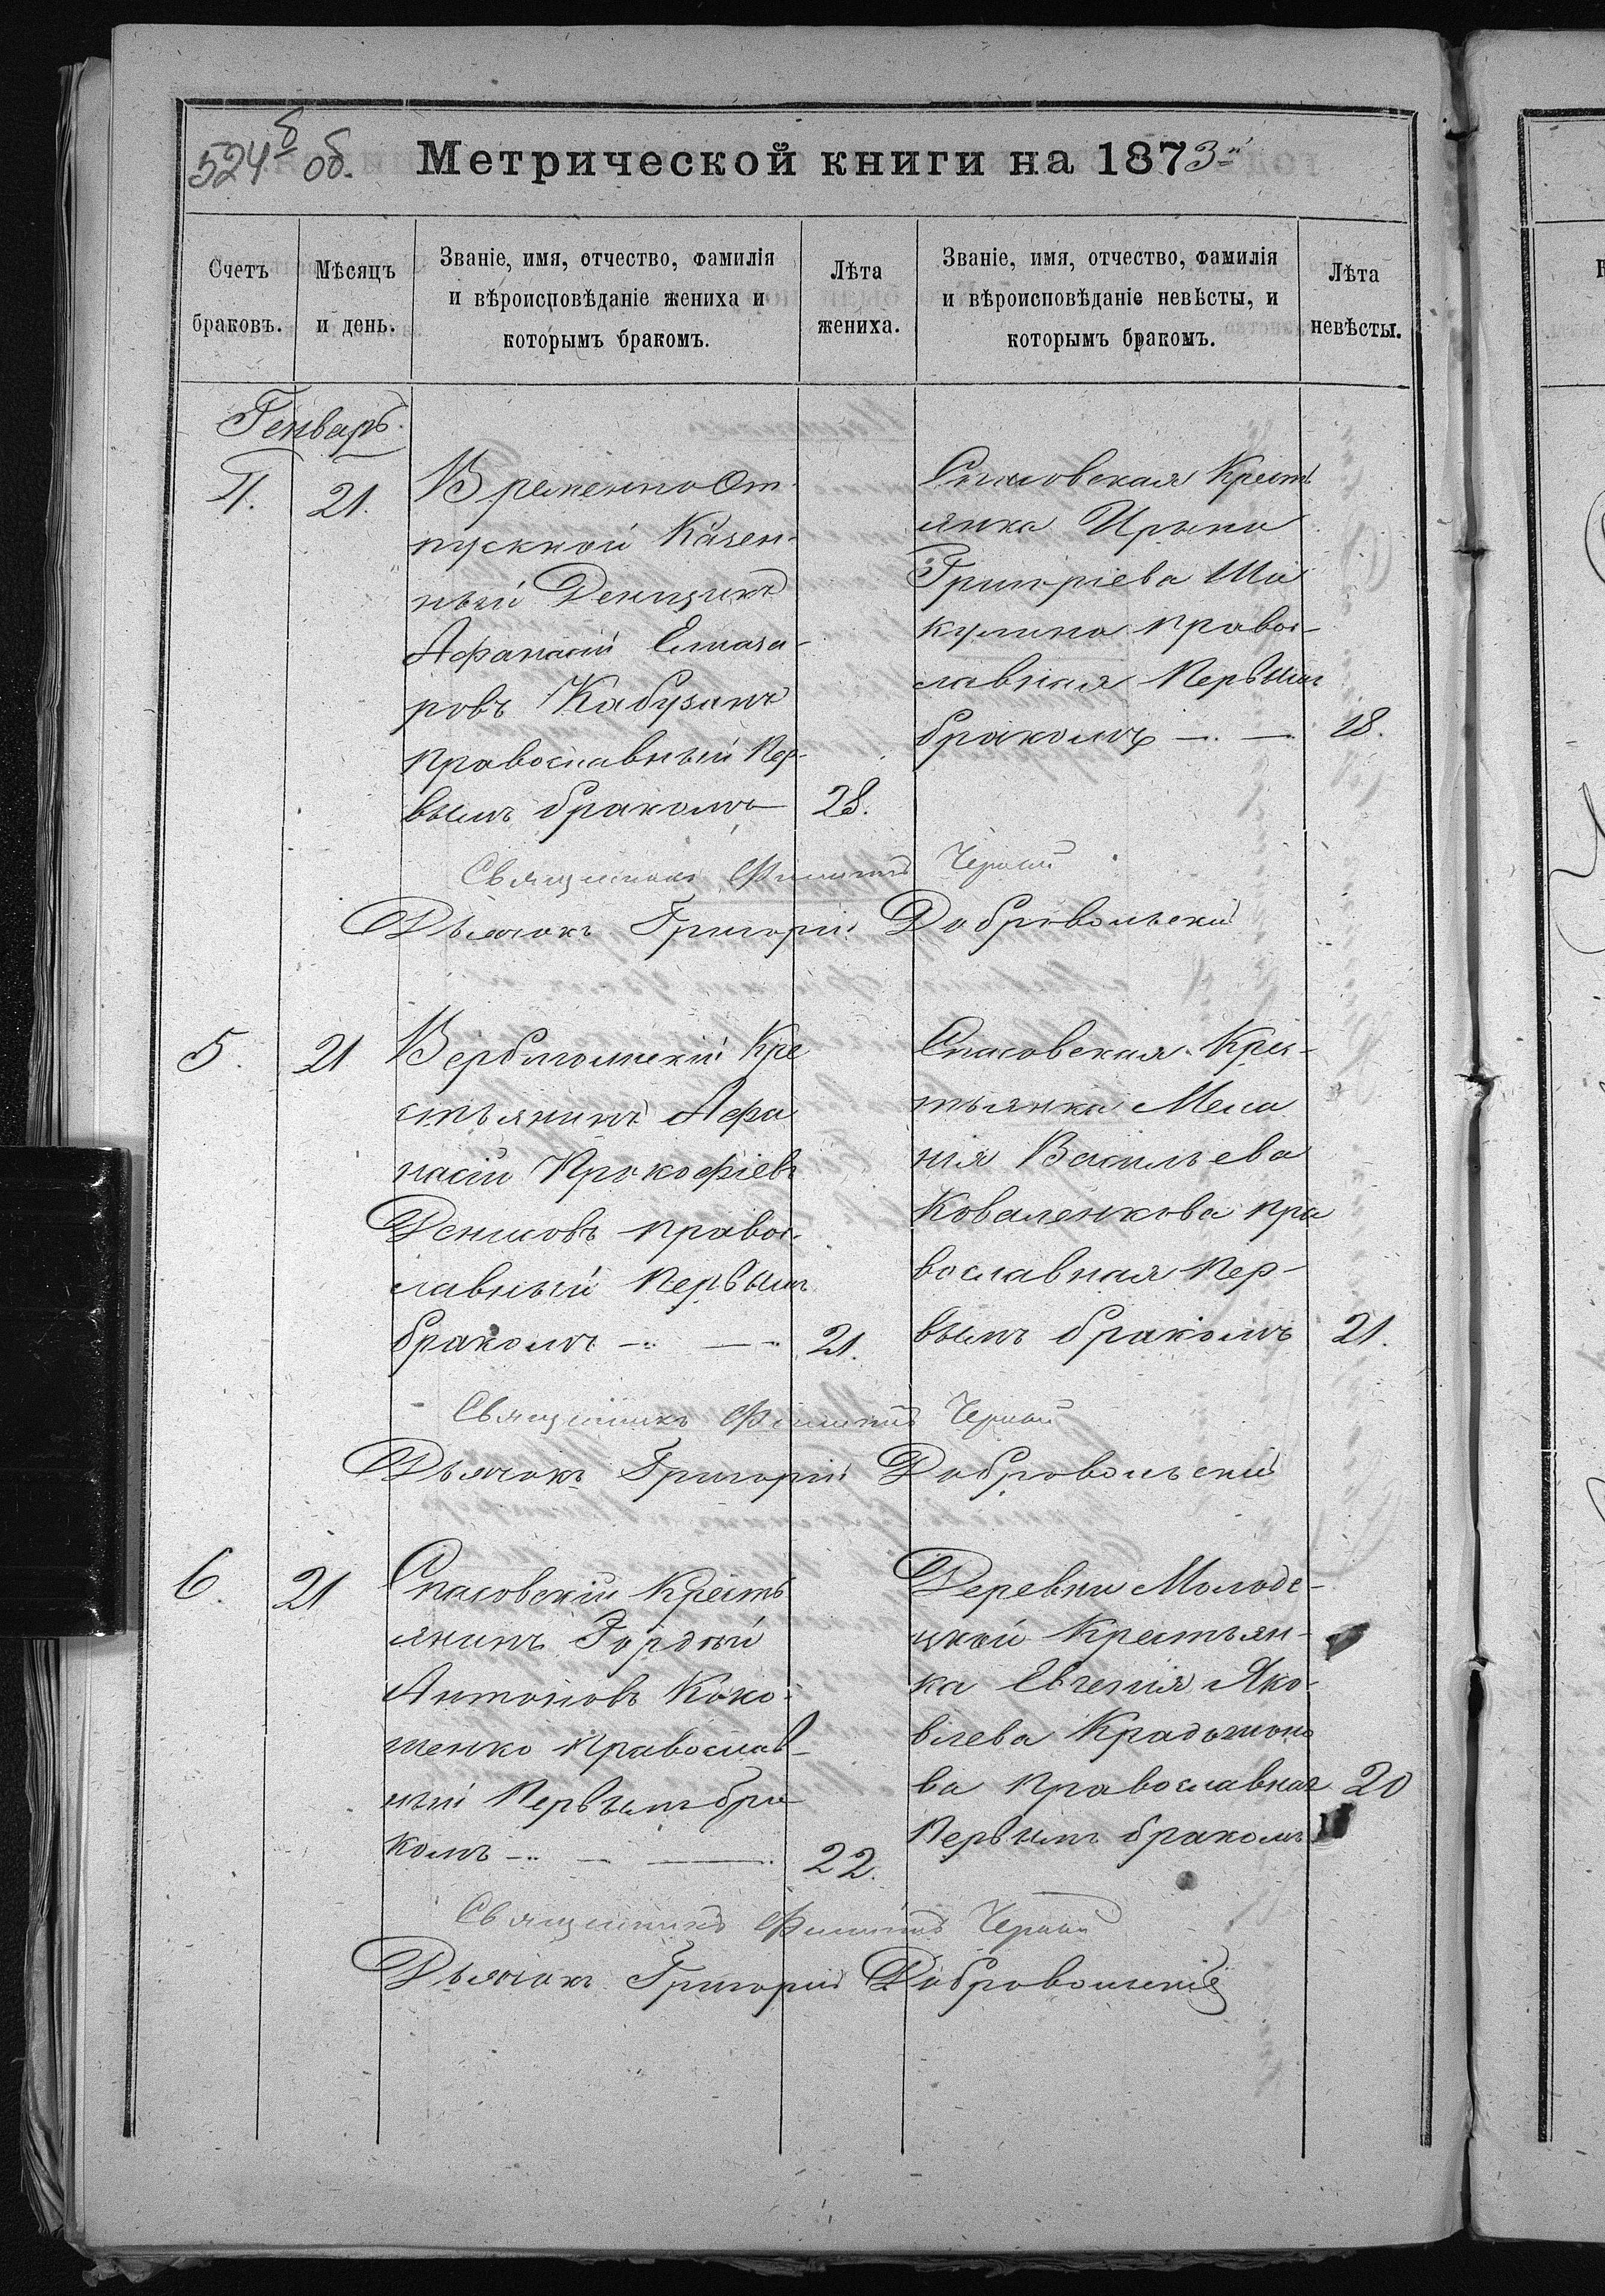 524 б об. Метрической книги на 1873 й
Счетъ браковъ.
Мѣсяцъ и день.
Званіе, имя, отчество, фамилія
и вѣроисповѣданіе жениха и
которымъ бракомъ.
Лѣта жениха.
Званіе, имя, отчество, фамилія
и вѣроисповѣданіе невѣсты, и
которымъ бракомъ.
Лѣта невѣсты.
Генварь.
4. 21.
Временно От-
пускной Казен-
ный Денщикъ
Афанасій Елиаза-
ровъ Кабузанъ
православный пер-
вымъ бракомъ 28.
Спасовская Кресть
янка Ирина
Григоріева
кулина право-
славная первымъ
бракомъ 18.
Священникъ Филиппъ Черный
Дьячокъ Григорій Добровольскій
5. 21
Кре
стьянинъ Афа
насій Прокофіевъ
Денисовъ право-
славный первымъ
бракомъ 21.
Спасовская Крес-
тьянка Мела
нія Васильева
Коваленкова пра
вославная пер-
вымъ бракомъ 21.
Священникъ Филиппъ Черный
Дьячокъ Григорій Добровольскій
6. 21
Спасовскій Кресть
янинъ Гордій
Антоновъ Коно-
ненко православ-
ный первымъ бра
комъ 22.
Деревни Молоде-
цкой Крестьян-
ка Евгенія Яко-
влева
ва православная 20
первымъ бракомъ
Священникъ Филиппъ Черный
Дьячокъ Григорій Добровольскій